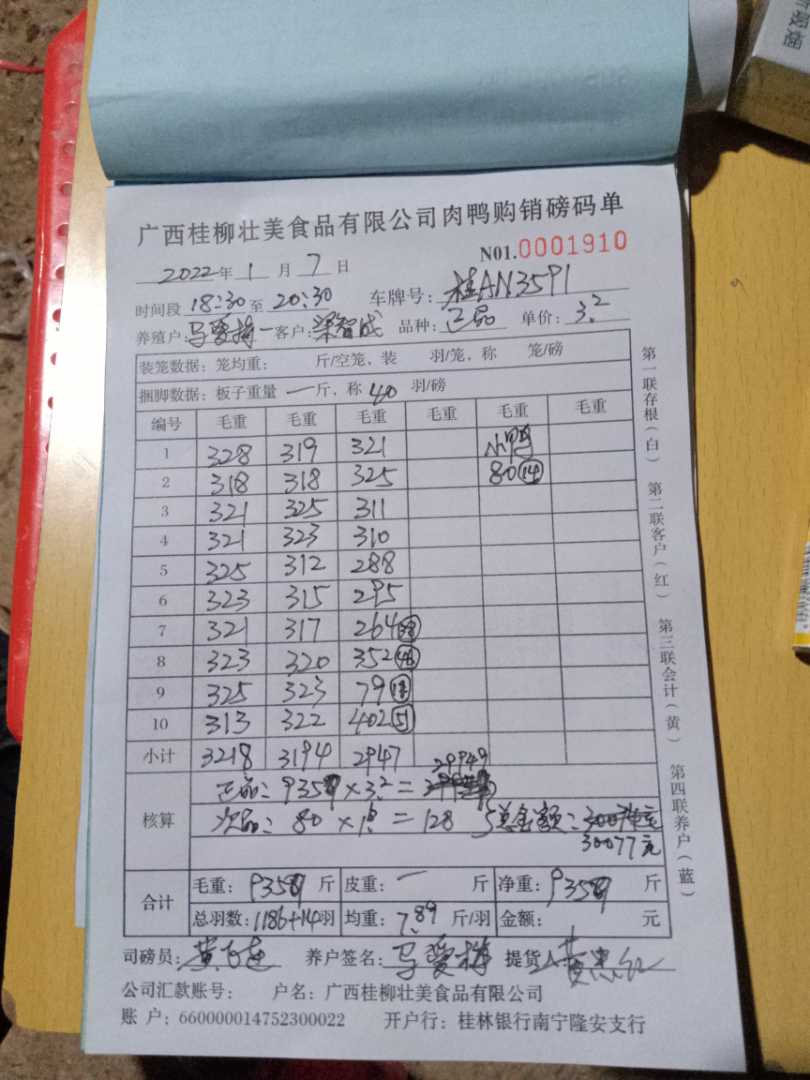 广西桂柳壮美食品有限公司肉鸭购销磅码单
N01.0001910
2022年1月7日
时间段 18:30至20:30 车牌号：桂AN3591
养殖户：马爱梅 一客户：梁智成 品种：正品 单价：3.2
装笼数据：笼均重： 斤/空笼，装 羽/笼，称 笼/磅
捆脚数据：板子重量 一 斤，称 40 羽/磅
编号 毛重 毛重 毛重 毛重 毛重 毛重
1 328 319 321 小鸭
2 318 318 325 80 14
3 321 325 311
4 321 323 310
5 325 312 288
6 323 315 295
7 321 317 264
8 323 320 352 46
9 325 323 79
10 313 322 402 51
小计 3218 3194 2947
29949
核算
正品：9359×3.2=
次品：80×1.6=128 总金额：
30077元
合计
毛重：9359斤 皮重：一 斤 净重：9359 斤
总羽数：1186+14羽 均重：7.89斤/羽 金额： 元
司磅员： 养户签名：马爱梅 提货人
公司汇款账号： 户名：广西桂柳壮美食品有限公司
账 户：660000014752300022 开户行：桂林银行南宁隆安支行
第一联存根（白） 第二联客户（红） 第三联会计（黄） 第四联养户（蓝）